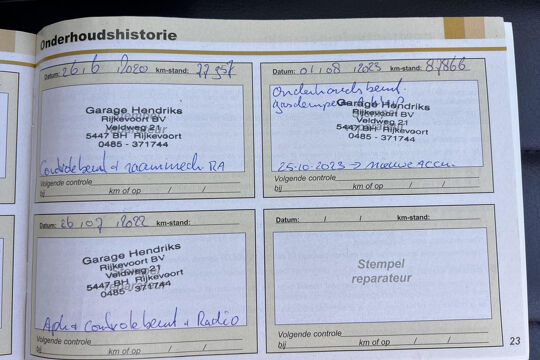 Onderhoudshistorie
Datum: 26 / 6 / 2020 km-stand: 77957
Garage Hendriks
Rijkevoort BV
Veldweg 21
5447 BH Rijkevoort
0485 - 371744
Controlebeurt + raammech RA
Volgende controle
bij km of op / /
Datum: 26 / 07 / 2022 km-stand:
Garage Hendriks
Rijkevoort BV
Veldweg 21
5447 BH Rijkevoort
0485 - 371744
Apk + controlebeurt + Radio
Volgende controle
bij km of op / /
Datum: 01 / 08 / 2023 km-stand: 87866
Onderhoudsbeurt.
Garage Hendriks
Rijkevoort BV
Veldweg 21
5447 BH Rijkevoort
0485 - 371744
25-10-2023 → nieuwe Accu.
Volgende controle
bij km of op / /
Datum: / / km-stand:
Stempel
reparateur
Volgende controle
bij km of op / /
23